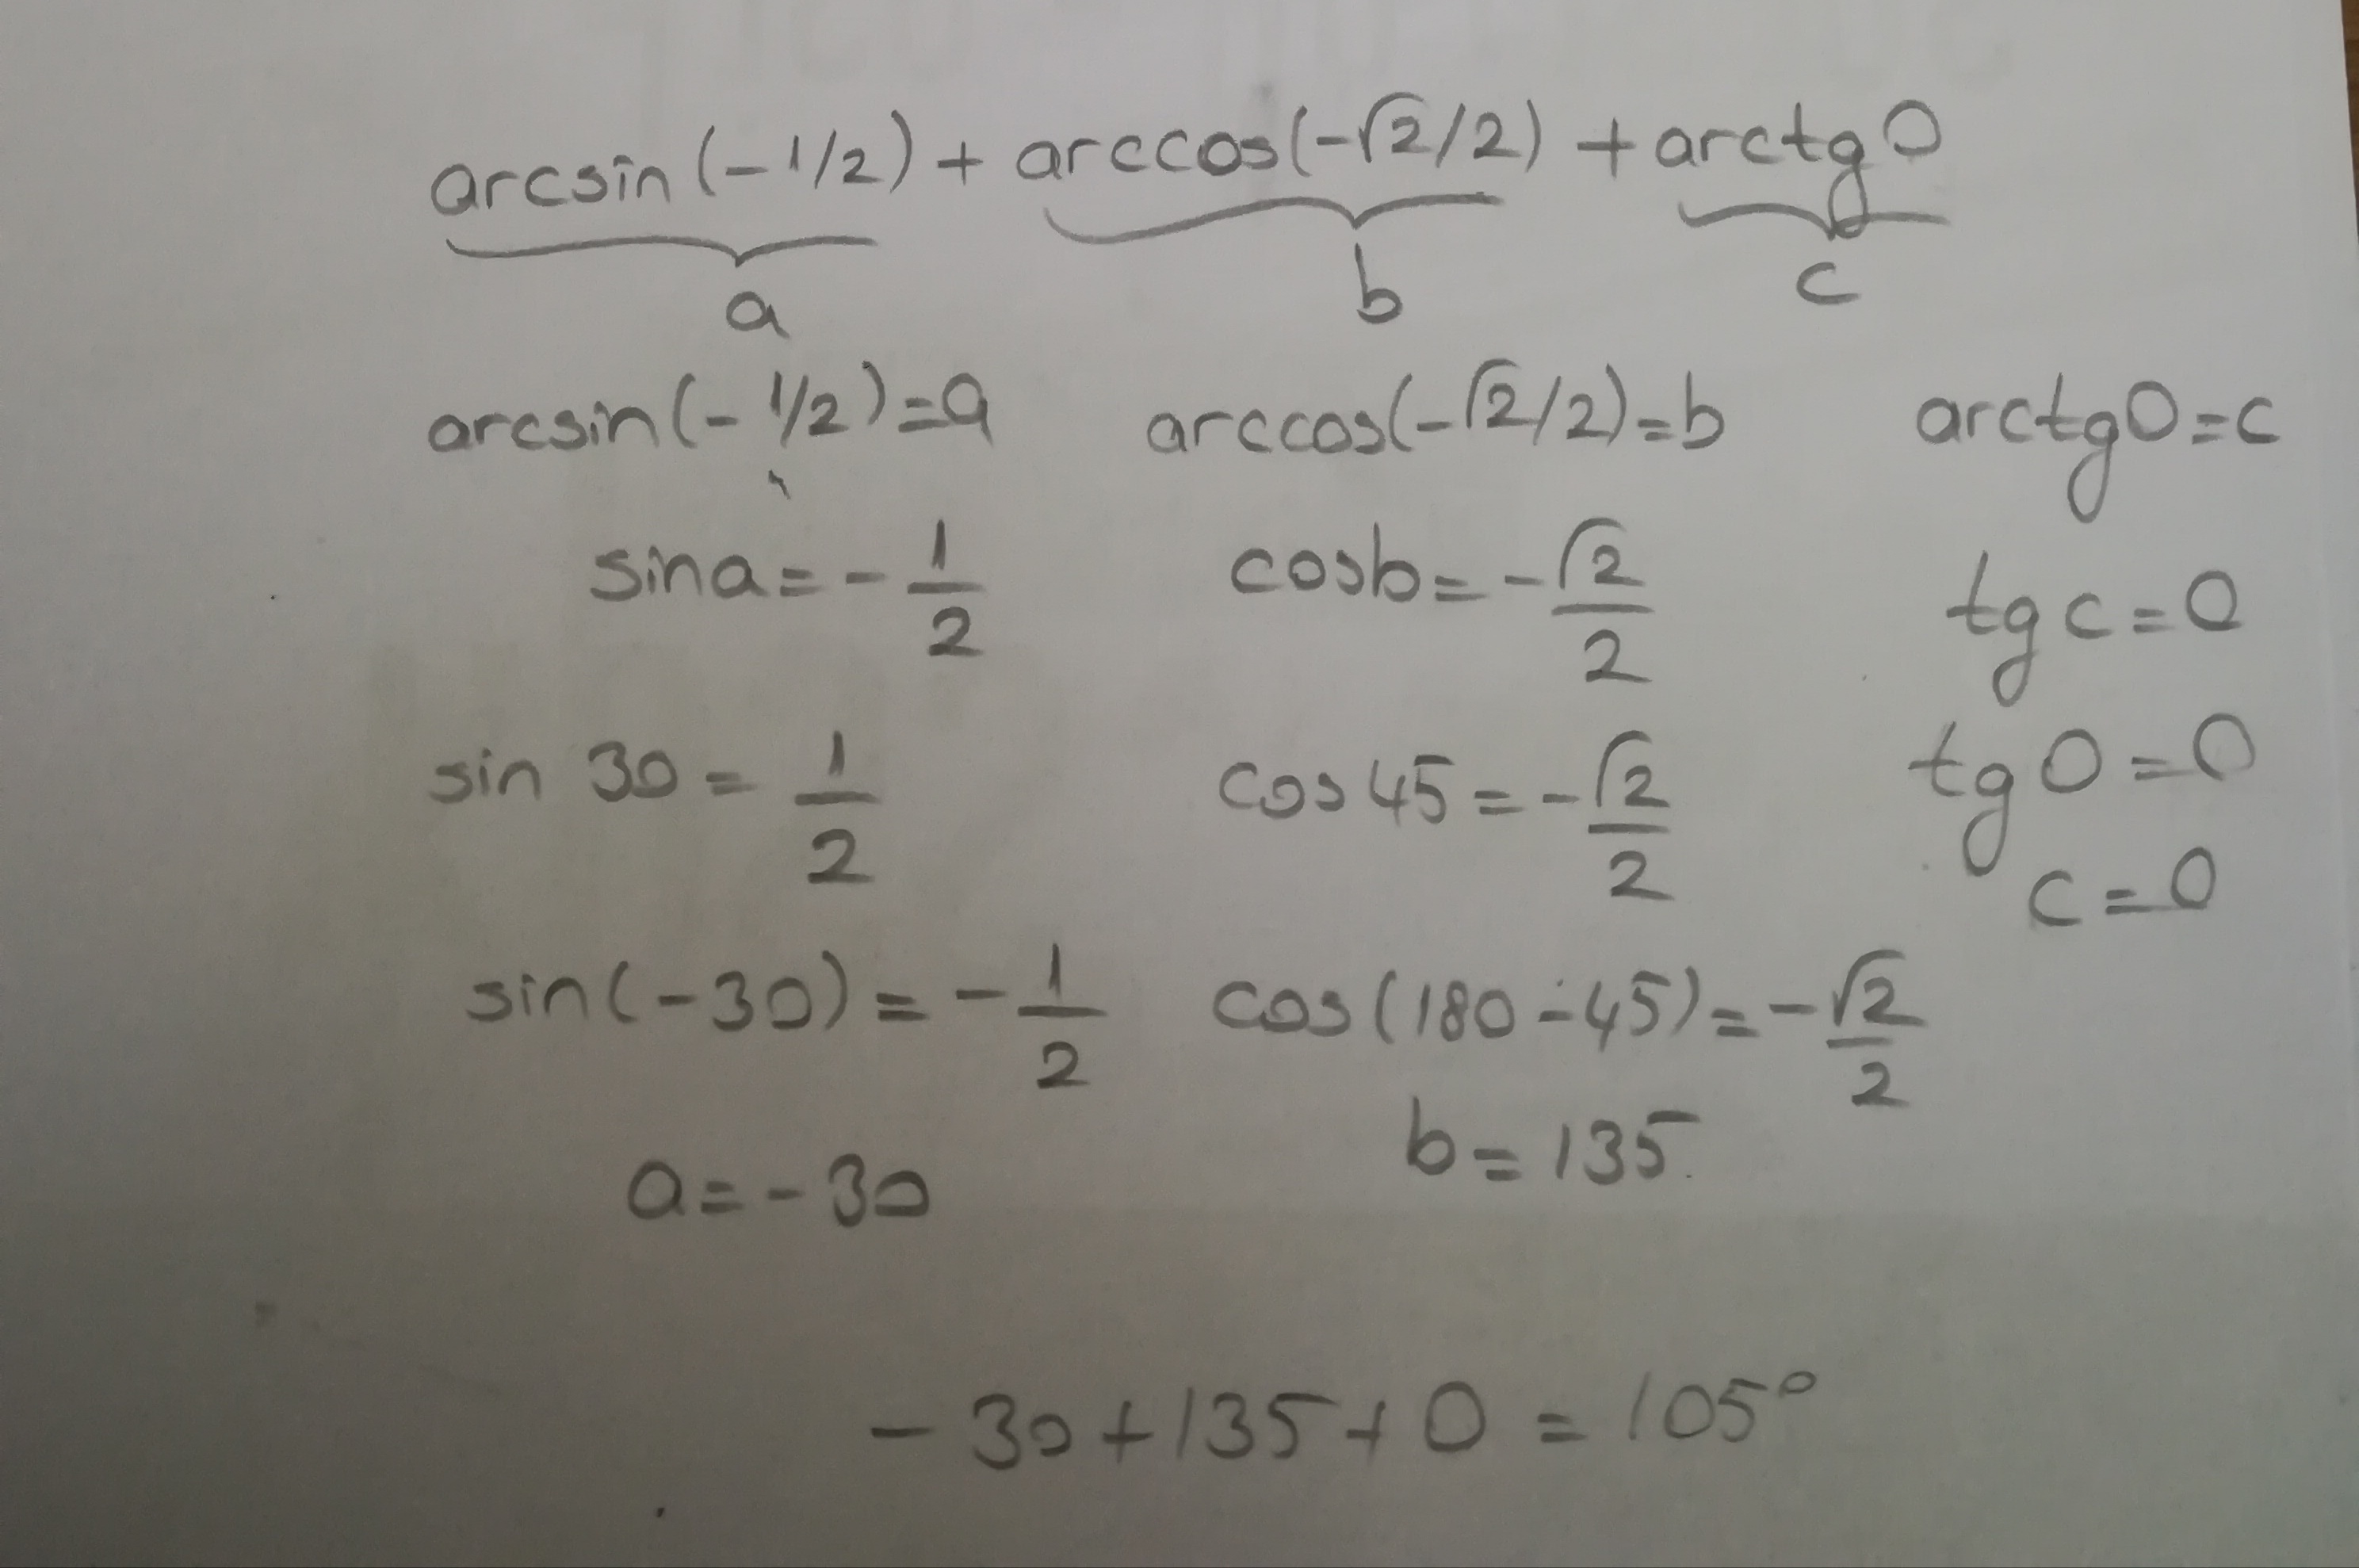 arcsin(-1/2) + arccos(-√2/2) + arctg0
a b c
arcsin(-1/2)=a arccos(-√2/2)=b arctg0=c
sina=-1/2 cosb=-√2/2 tgc=0
sin 30=1/2 cos45=-√2/2 tg0=0
c=0
sin(-30)=-1/2 cos(180-45)=-√2/2
a=-30 b=135
-30+135+0=105°